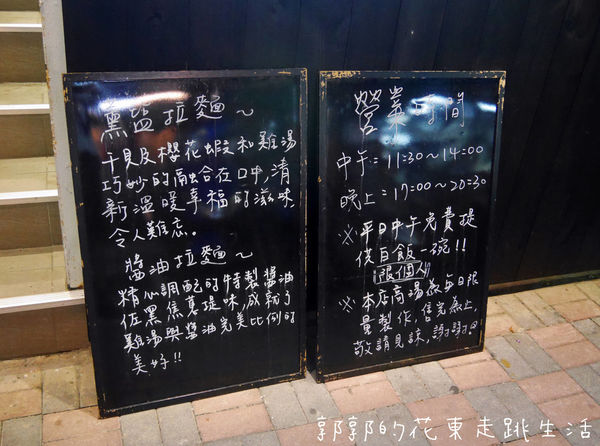 薰鹽拉麵~
干貝及櫻花蝦和雞湯
巧妙的融合在口中,清
新溫暖幸福的滋味
令人難忘。
醬油拉麵~
精心調配的特製醬油
佐黑焦蔥提味,成就了
雞湯與醬油完美比例的
美好!!
營業時間
中午=11:30~14:00
晚上=17:00~20:30
※平日中午免費提
供白飯一碗!!
限個人
※本店高湯為每日限
量製作,售完為止,
敬請見諒,謝謝
郭郭的花東走跳生活